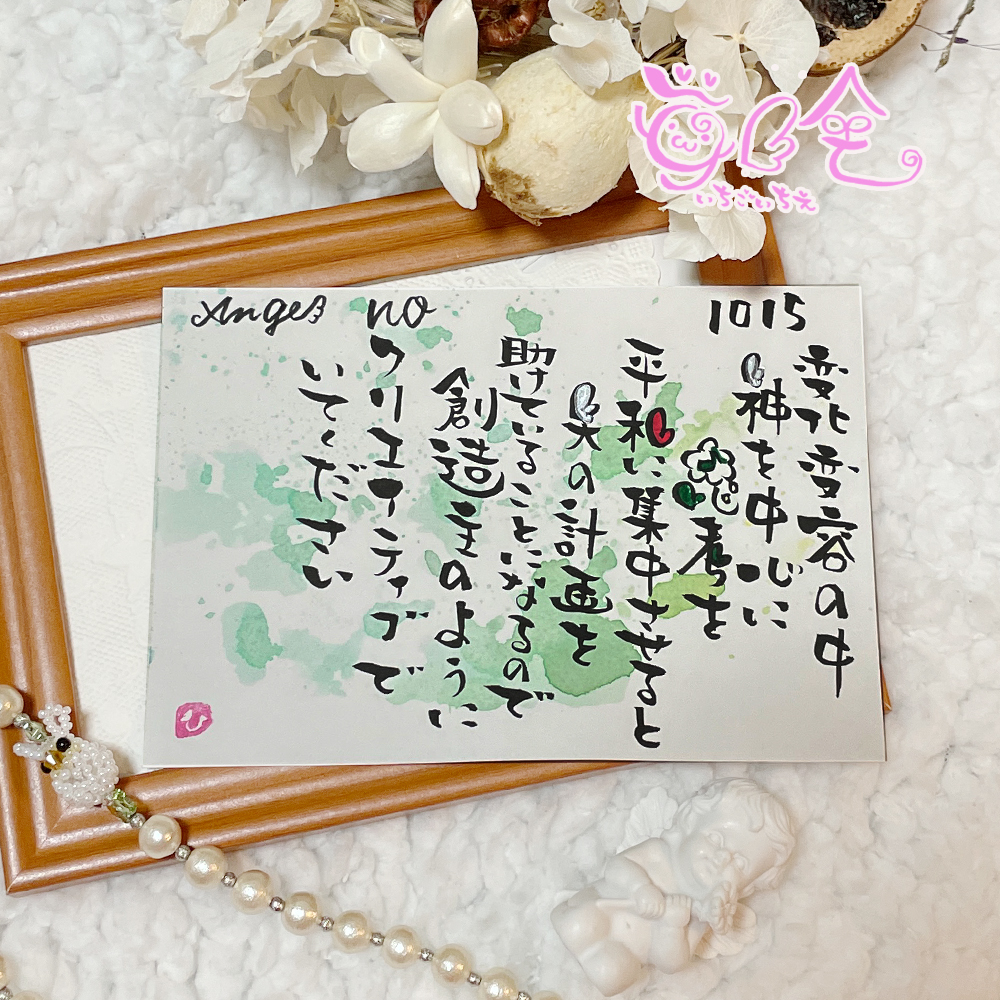 いちごいちえ
Angel no 1015
変化変容の中
神を中心に
思考を
平和に集中させると
天の計画を
助けていることになるので
創造主のように
クリエイティブで
いてください
ひ